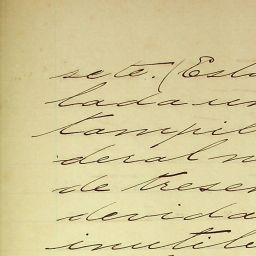 sete. (Esta
lada um
tampil
deral n
de tresen
devida
inutile